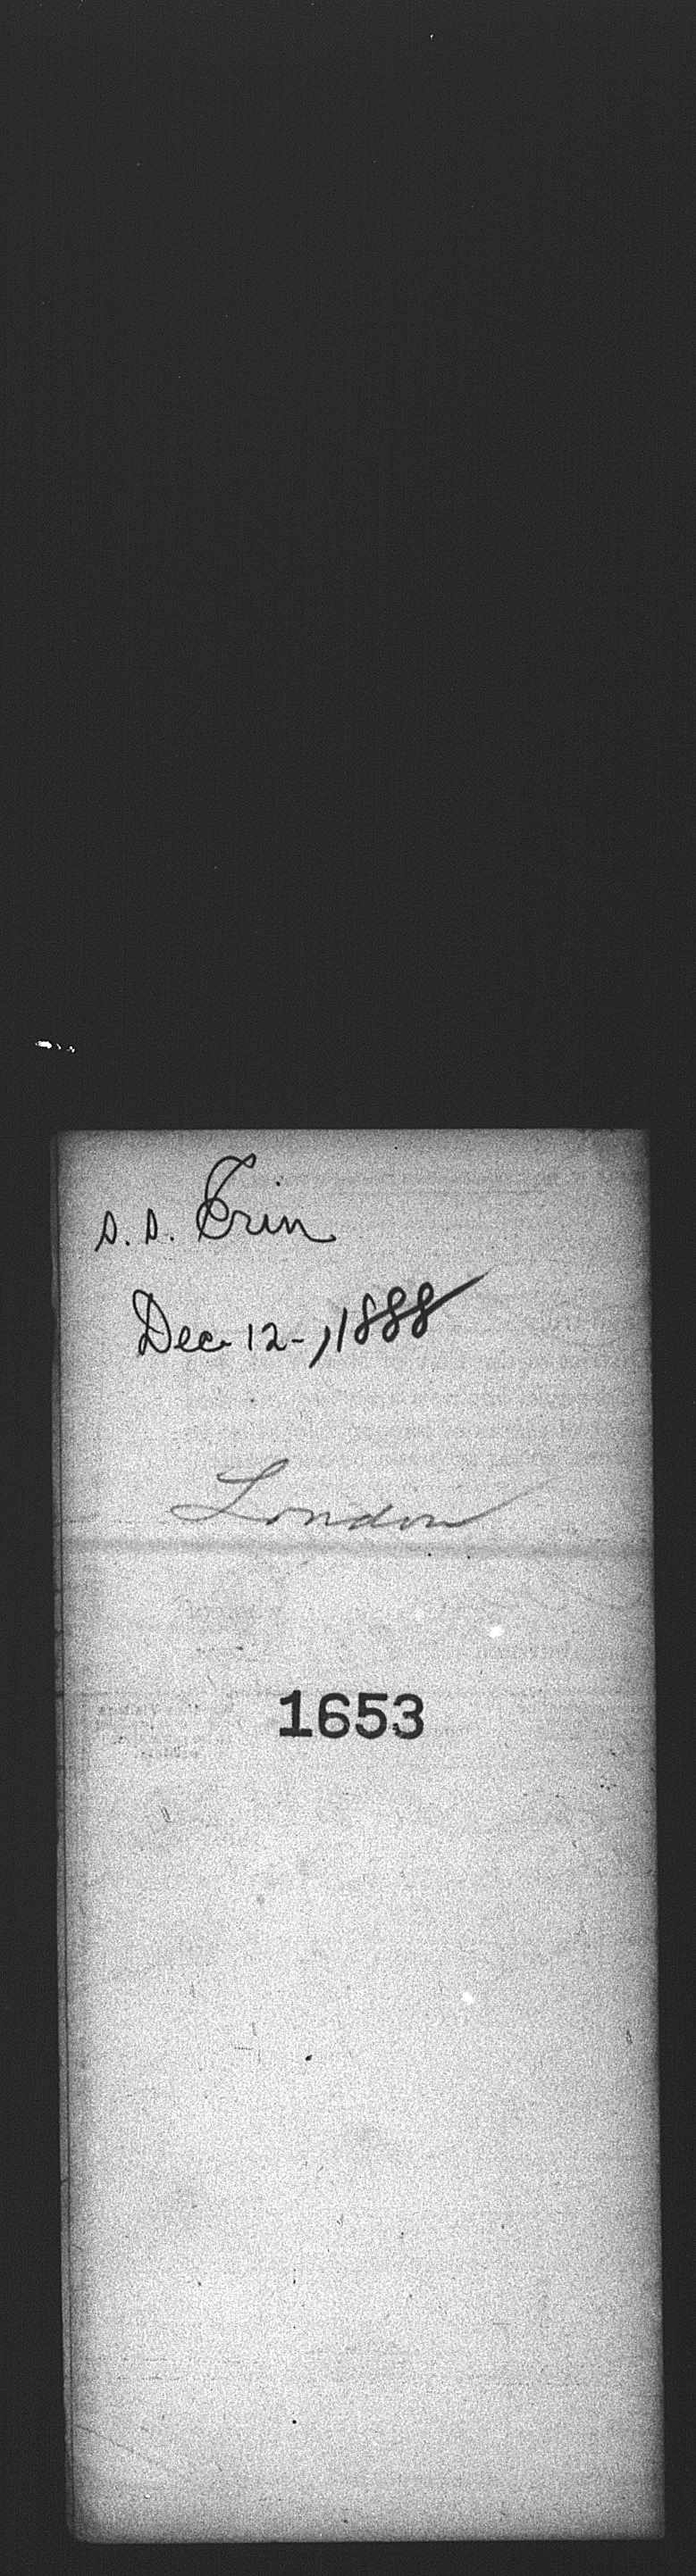 s.s. Erin
Dec. 12-, 1888
London
1653